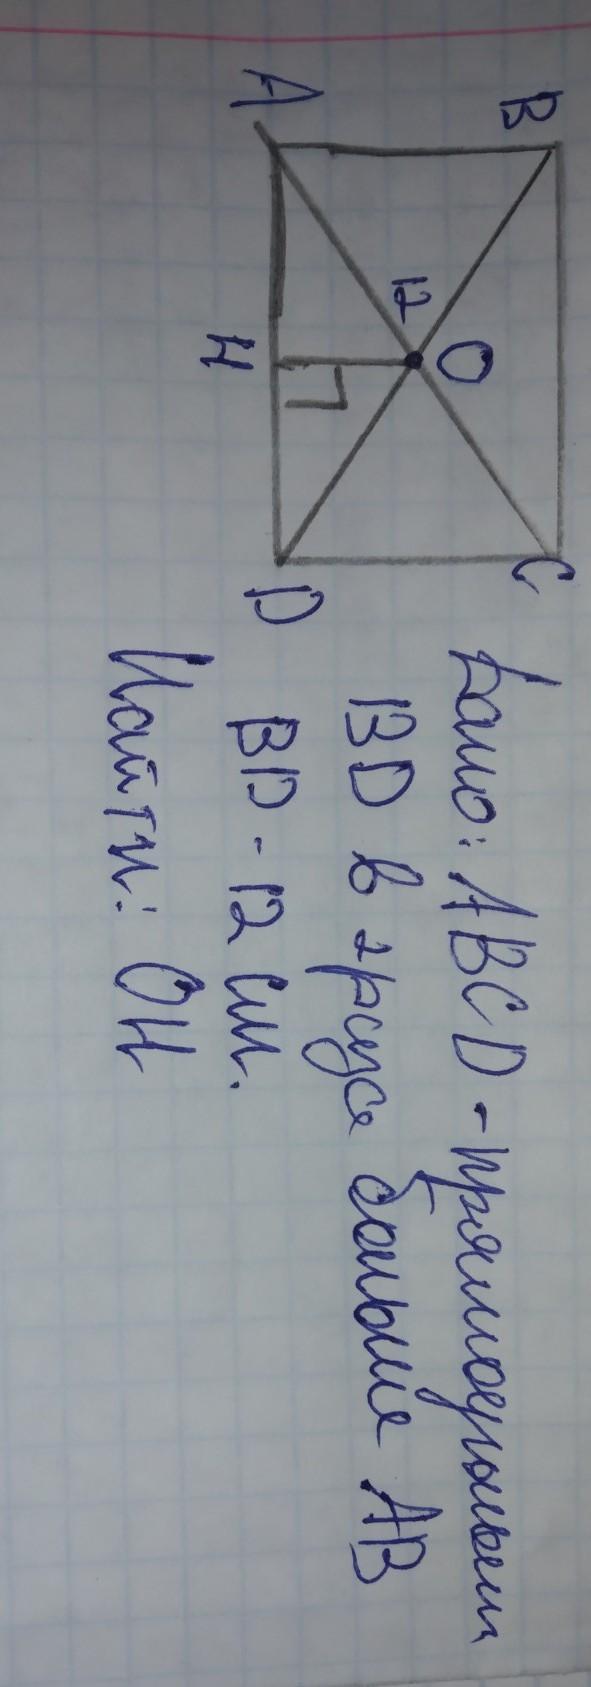 B C
O
12
A H D
Дано: ABCD - прямоугольник
BD в 2 раза больше AB
BD - 12 см.
Найти: OH